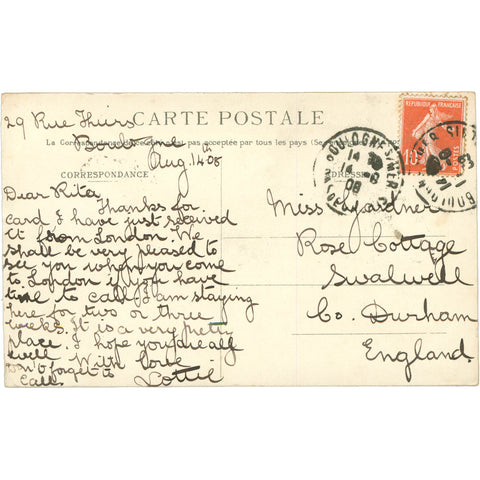 29 Rue Thiers
CARTE POSTALE
Boulogne
La Correspondance pas acceptée par tous les pays (Se
Aug. 14th 08
CORRESPONDANCE
Dear Rita,
Thanks for
card I have just received
it from London. We
shall be very pleased to
see you when you come
to London if you have
time to call. I am staying
here for two or three
weeks. It is a very pretty
place. I hope you are all
well. With love
Lottie
Don't forget to
call.
REPUBLIQUE FRANÇAISE
10
POSTES
BOULOGNE-S-MER
14 - 8
08
Miss Gardner
Rose Cottage
Swalwell
Co. Durham
England.